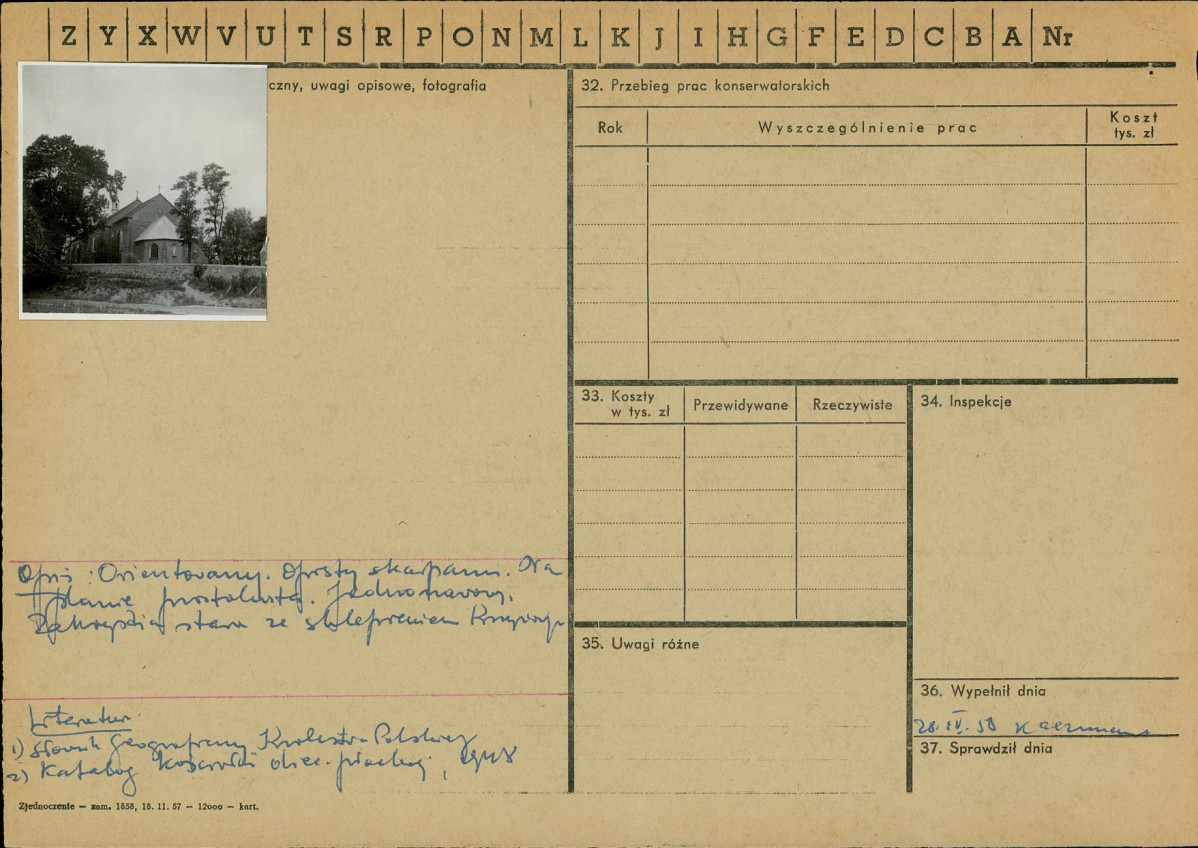 Z Y X W V U T S R P O N M L K J I H G F E D C B A Nr
czny, uwagi opisowe, fotografia
Opis: Orientowany. Oparty skarpami. Na
planie prostokąta. Jednonawowy.
Zakrystia stara ze sklepieniem
Literatura:
1) Słownik Geograficzny Królestwa Polskiego
2) Katalog Kościołów diec. płockiej, 1948
Zjednoczenie — zam. 1858, 18. 11. 57 — 12000 — kart.
32. Przebieg prac konserwatorskich
Rok Wyszczególnienie prac Koszt tys. zł
33. Koszty w tys. zł Przewidywane Rzeczywiste
34. Inspekcje
35. Uwagi różne
36. Wypełnił dnia
28.IV.58
37. Sprawdził dnia